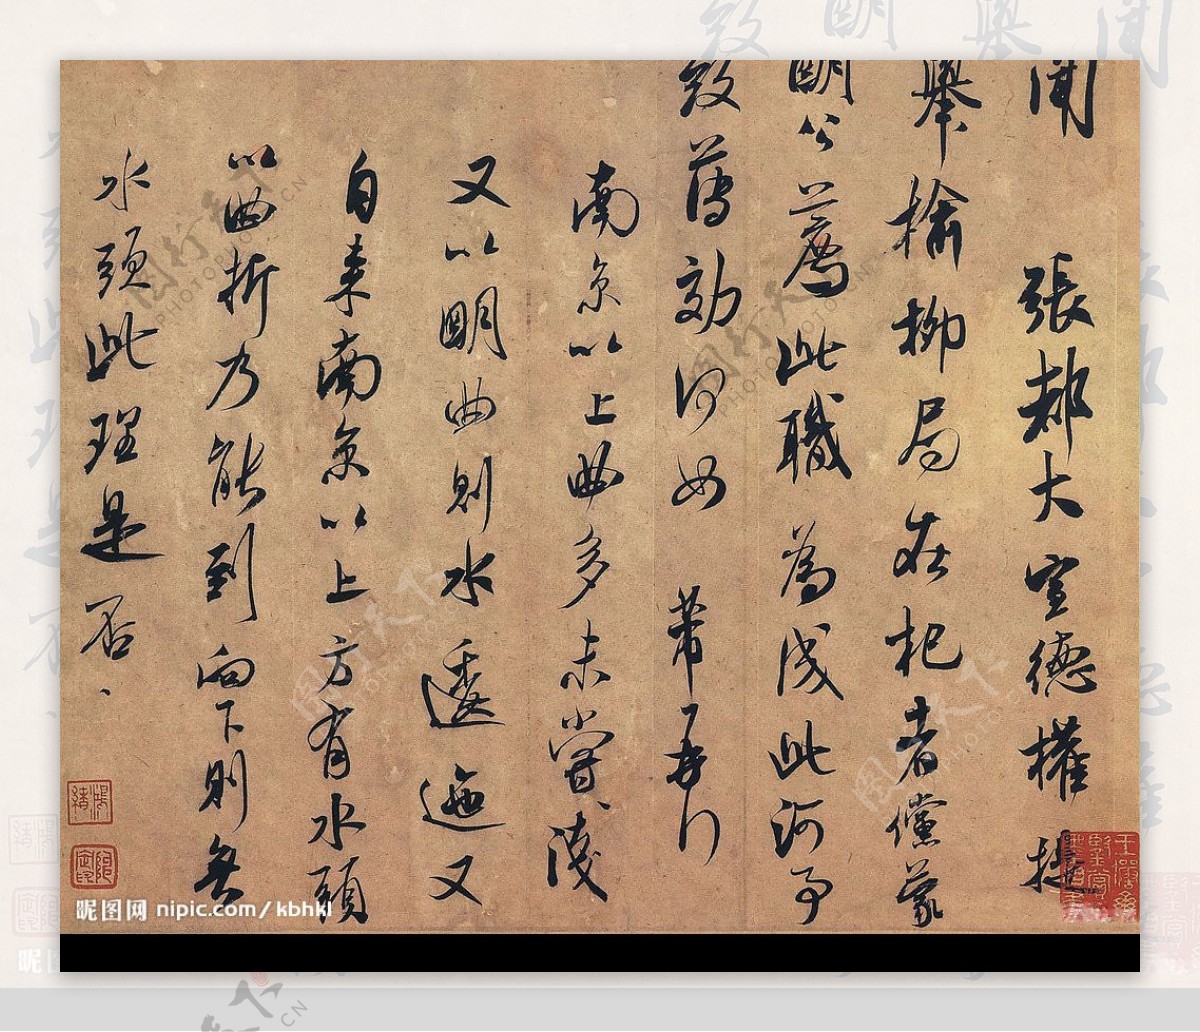 聞 張都大宣德權提
舉榆柳局在杞者儻蒙
明公薦此職為成此河事
致薄効何如 芾再行
南京以上曲多未嘗淺
又以明曲則水逶迤又
自來南京以上方有水頭
以曲折乃能到向下則無
水頭此理是否
昵图网 nipic.com/kbhkl